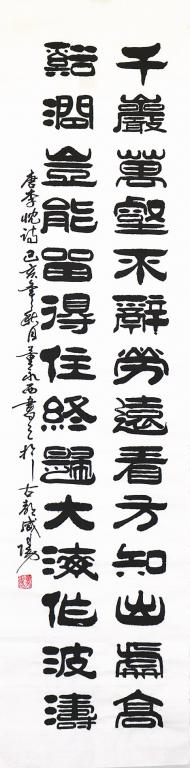 千巖萬壑不辭勞遠看方知出處高
谿澗豈能留得住終歸大海作波濤
唐李忱詩己亥年秋月董永西書之於古都咸陽